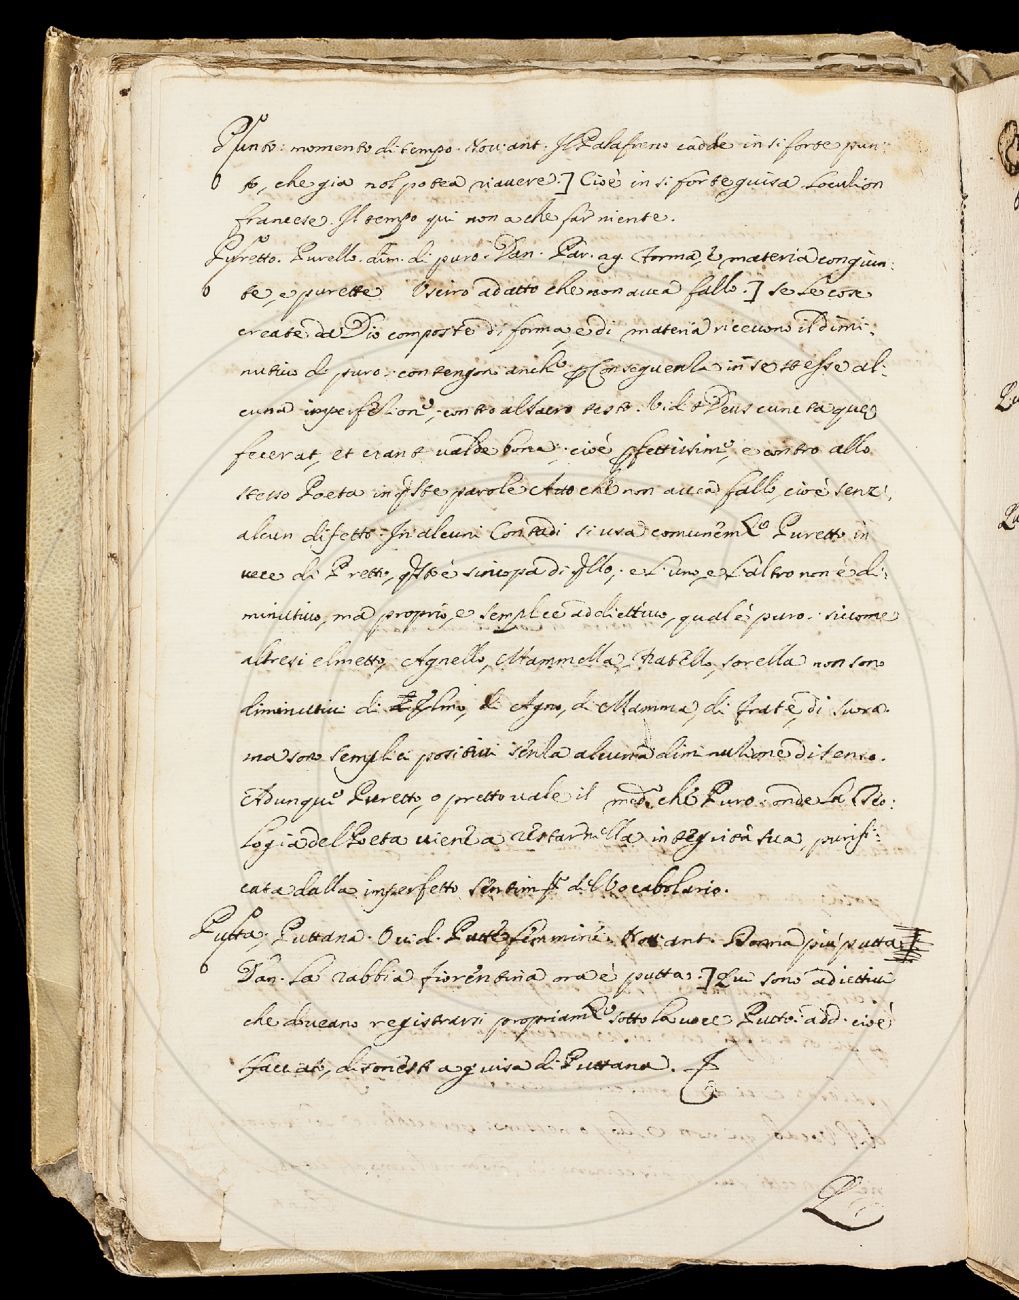 Punto: momento di tempo. Nov: ant. Il Palafreno cadde in si forte pun:
to, che gia nol potea riavere.] Cioè in si forte guisa. Locution
francese. Il tempo qui non a che far niente.
Puretto. Purello. dim. di puro. Dan. Par. 29. Forma, e materia congiun:
te, e purette Usciro ad atto che non avea fallo.] Se le cose
create da Dio composte di forma, e di materia riceuono il dimi:
nutiuo di puro: contengono anche p Conseguenza in se stesse al:
cuna imperfezione, contro al sacro testo. Vidit Deus cuncta que
fecerat, et erant valde bona: cioè pfettissime, e contro allo
stesso Poeta in qste parole Atto che non avea fallo, cioè senz'
alcun difetto. In alcuni Contadi si usa comunemte Puretto in
vece di Pretto, qsto è sincopa di qllo, e l'uno, e l'altro non è di:
minutiuo, ma proprio, e semplice addiettiuo, qual è puro. sicome
altresi elmetto, Agnello, Mammella, fratello, sorella non sono
diminutiui di Elmo, di Agno, di Mamma, di frate, di suora.
ma sono semplici positiui senza alcuna diminutione di senso.
Adunque Puretto, o pretto vale il med.o che Puro: onde la Teo:
logia del Poeta viene a restar nella integrità sua, purifi:
cata dalla imperfetto sentimto del Vocabolario.
Putta, Puttana. Ovid. Putte femmine. Nov: ant. Roma più putta
Dan. La rabbia fiorentina ora è putta.] Qui sono adiettiui
che doueano registrarsi propriamte sotto la voce Putto: add. cioè
sfacciato, disonesto a guisa di Puttana.
L